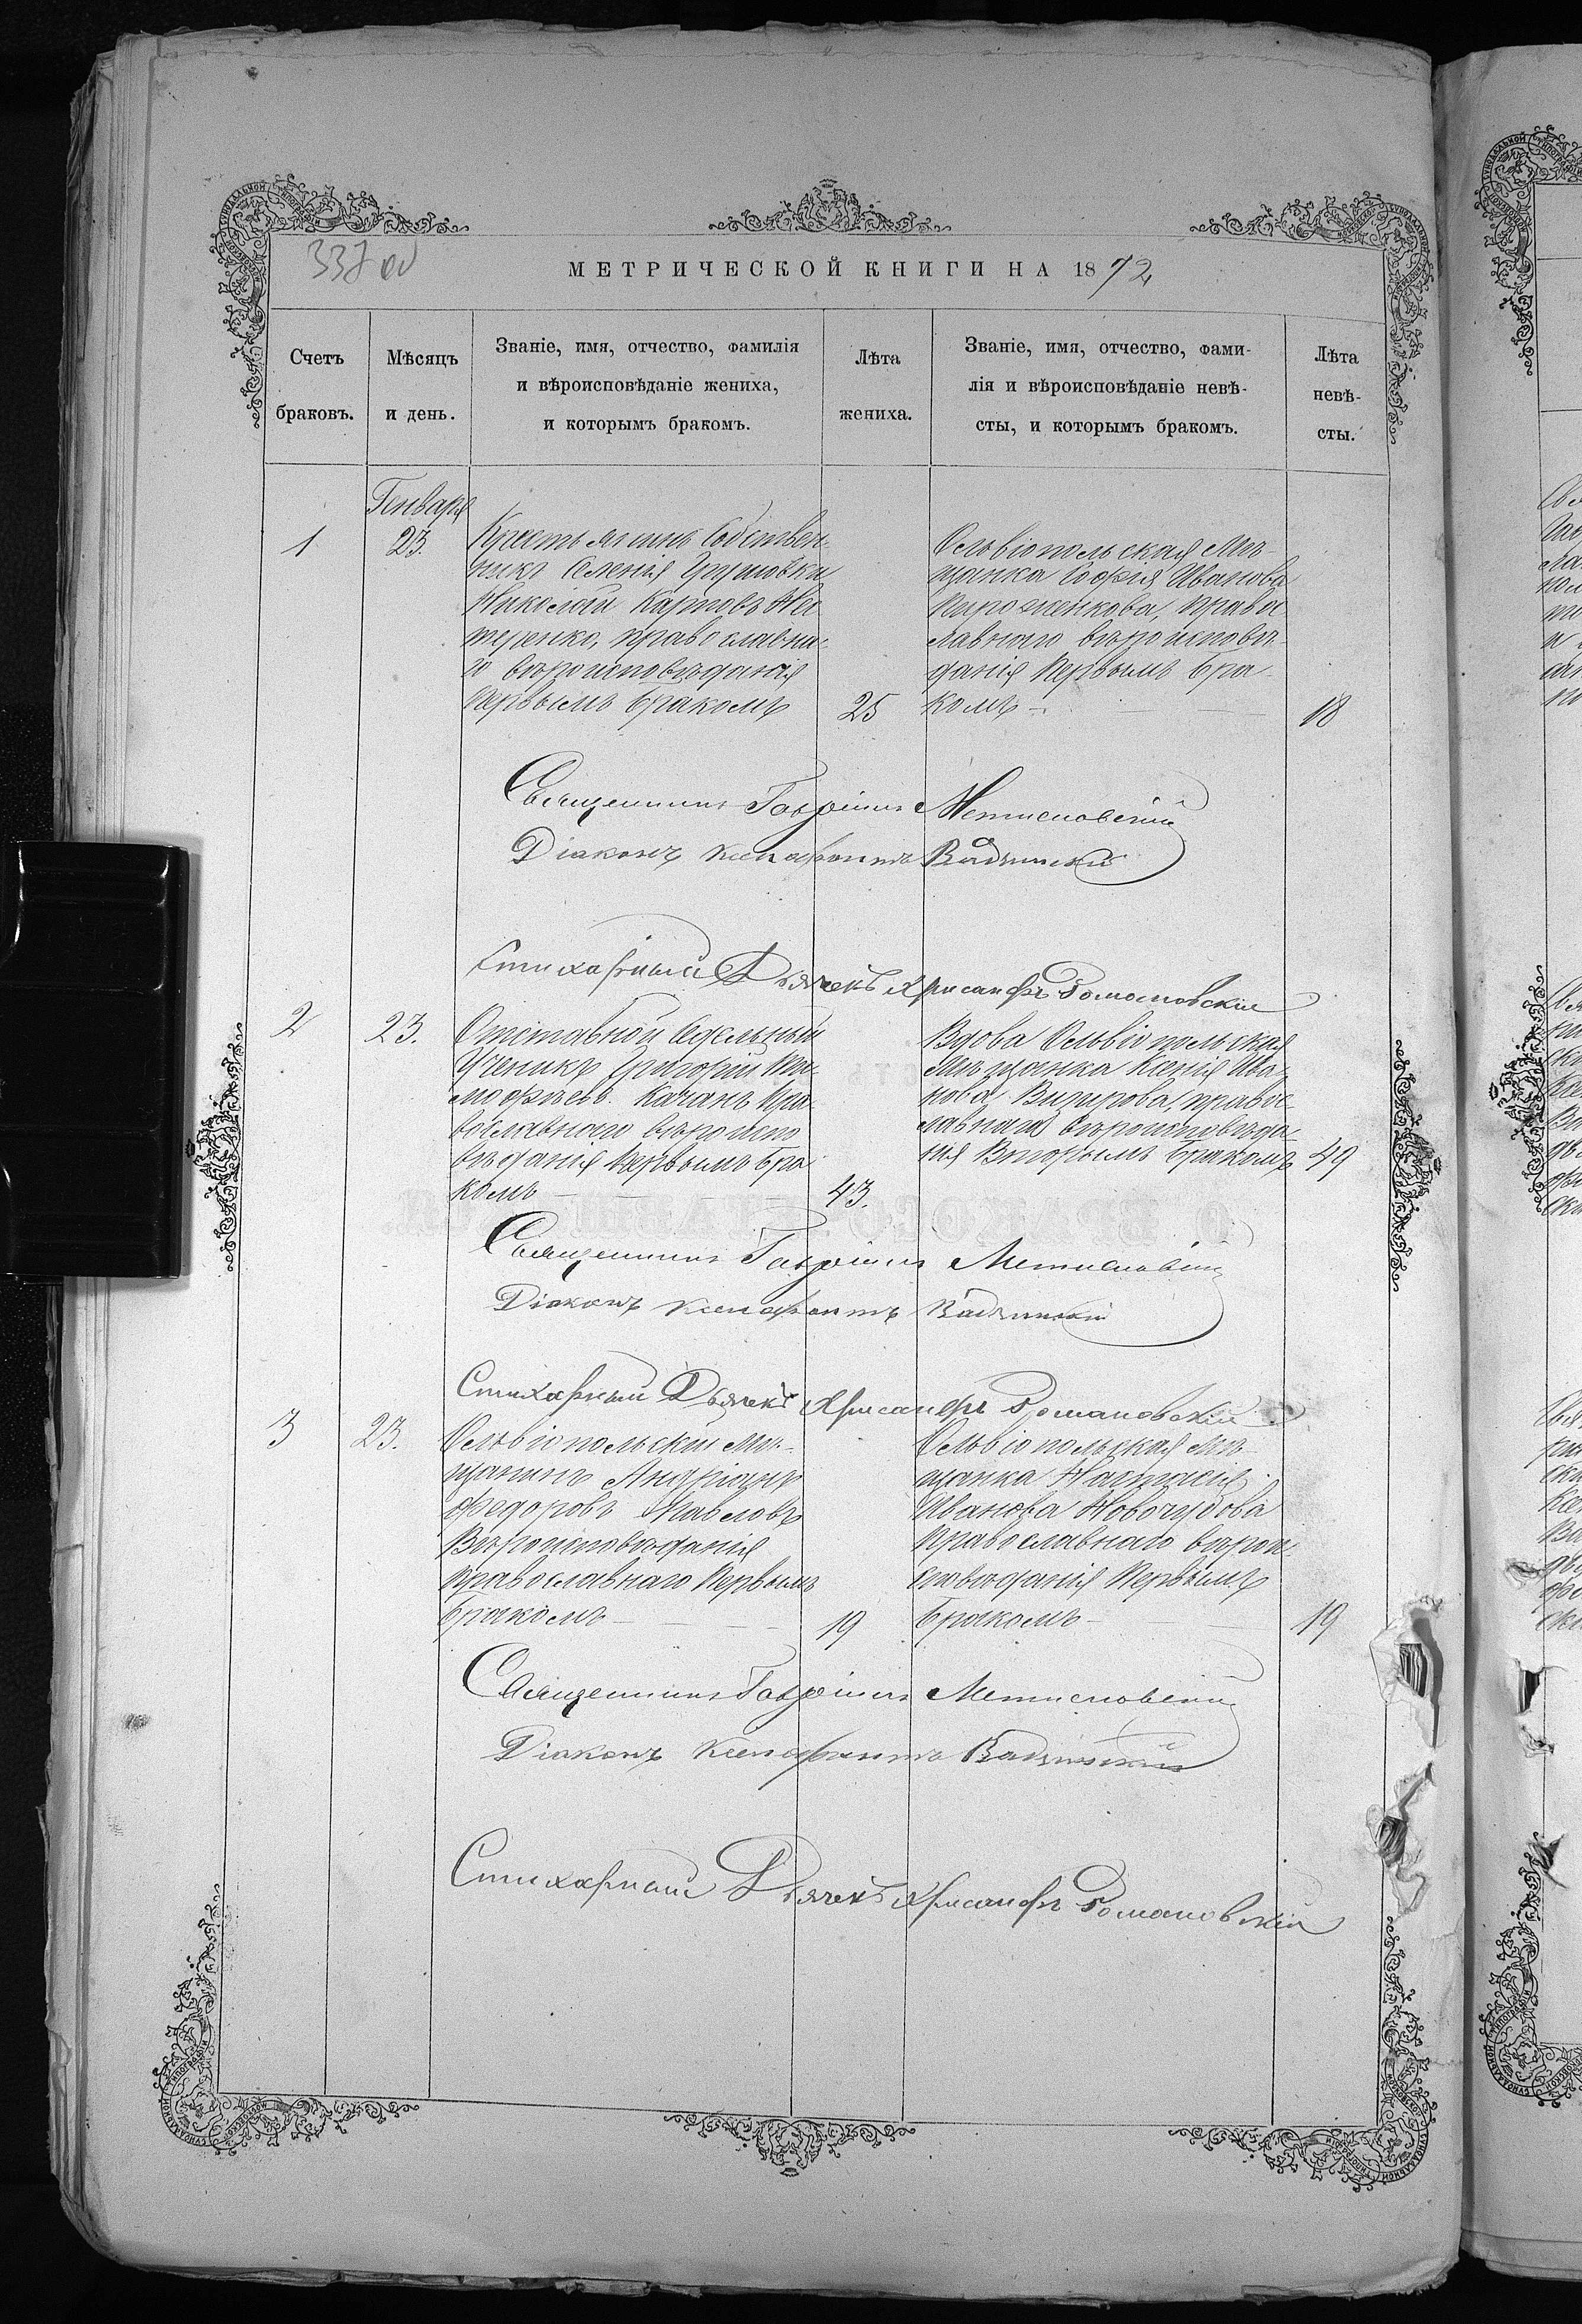 337 об
МЕТРИЧЕСКОЙ КНИГИ НА 1872
Счетъ браковъ.
Мѣсяцъ и день.
Званіе, имя, отчество, фамилія
и вѣроисповѣданіе жениха,
и которымъ бракомъ.
Лѣта жениха.
Званіе, имя, отчество, фами-
лія и вѣроисповѣданіе невѣ-
сты, и которымъ бракомъ.
Лѣта невѣ-
сты.
Генваря
1
23.
Крестьянинъ Собствен-
никъ Селенія Грушовки
Николай Карповъ
православна-
го вѣроисповѣданія
первымъ бракомъ
25
Ольвіопольская Мѣ-
щанка Софія Иванова
Пироженкова, правос
лавнаго вѣроисповѣ-
данія первымъ бра-
комъ
18
Священникъ Гавріилъ Мстиславскій
Діаконъ Ксенофонтъ
Стихарный Дьячекъ Хрисанфъ Романовскій
2
23.
Отставной
Ученикъ Григорій Ти-
мофѣевъ Качанъ пра-
вославнаго вѣроиспо
вѣданія первымъ бра
комъ
43.
Вдова Ольвіопольская
Мѣщанка Ксенія Ива-
нова Визирова, правос-
лавнаго вѣроисповѣда-
нія Вторымъ бракомъ
49
Священникъ Гавріилъ Мстиславскій
Діаконъ Ксенофонтъ
Стихарный Дьячекъ Хрисанфъ Романовскій
3
23.
Ольвіопольскій Мѣ-
щанинъ Андріанъ
Федоровъ Павловъ
Вѣроисповѣданія
православнаго первымъ
бракомъ
19
Ольвіопольская Мѣ-
щанка Настасія
Иванова Новочудова
Православнаго вѣрои-
сповѣданія первымъ
бракомъ
19
Священникъ Гавріилъ Мстиславскій
Діаконъ Ксенофонтъ
Стихарный Дьячекъ Хрисанфъ Романовскій